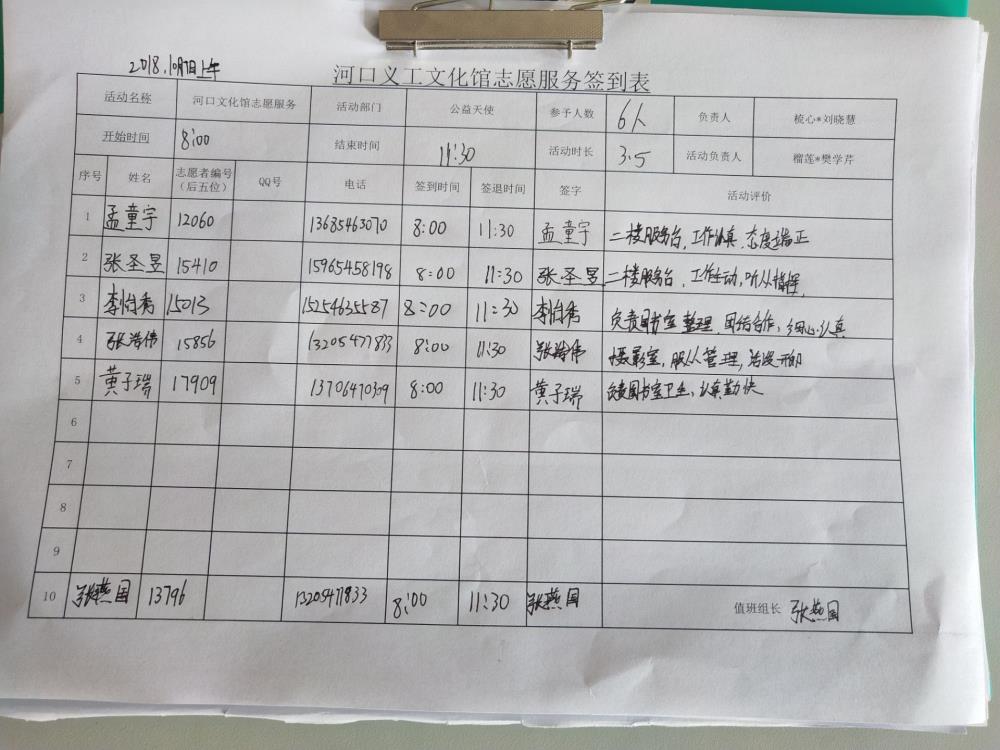 2018.10月7日上午
河口义工文化馆志愿服务签到表
活动名称 河口文化馆志愿服务 活动部门 公益天使 参予人数 6人 负责人 梳心*刘晓慧
开始时间 8:00 结束时间 11:30 活动时长 3.5 活动负责人 榴莲*樊学芹
序号 姓名 志愿者编号（后五位） QQ号 电话 签到时间 签退时间 签字 活动评价
1 孟童宇 12060 13685463070 8:00 11:30 孟童宇 二楼服务台,工作认真,态度端正
2 张圣昱 15410 15965458198 8:00 11:30 张圣昱 二楼服务台,工作主动,听从指挥
3 李怡秀 15013 15254635587 8:00 11:30 李怡秀 负责图书室整理,团结合作,细心认真
4 张浩伟 15856 13205477833 8:00 11:30 张浩伟 摄影室,服从管理
5 黄子瑞 17909 13706470309 8:00 11:30 黄子瑞 负责图书室卫生,认真勤快
6
7
8
9
10 张燕国 13796 13205477833 8:00 11:30 张燕国 值班组长 张燕国